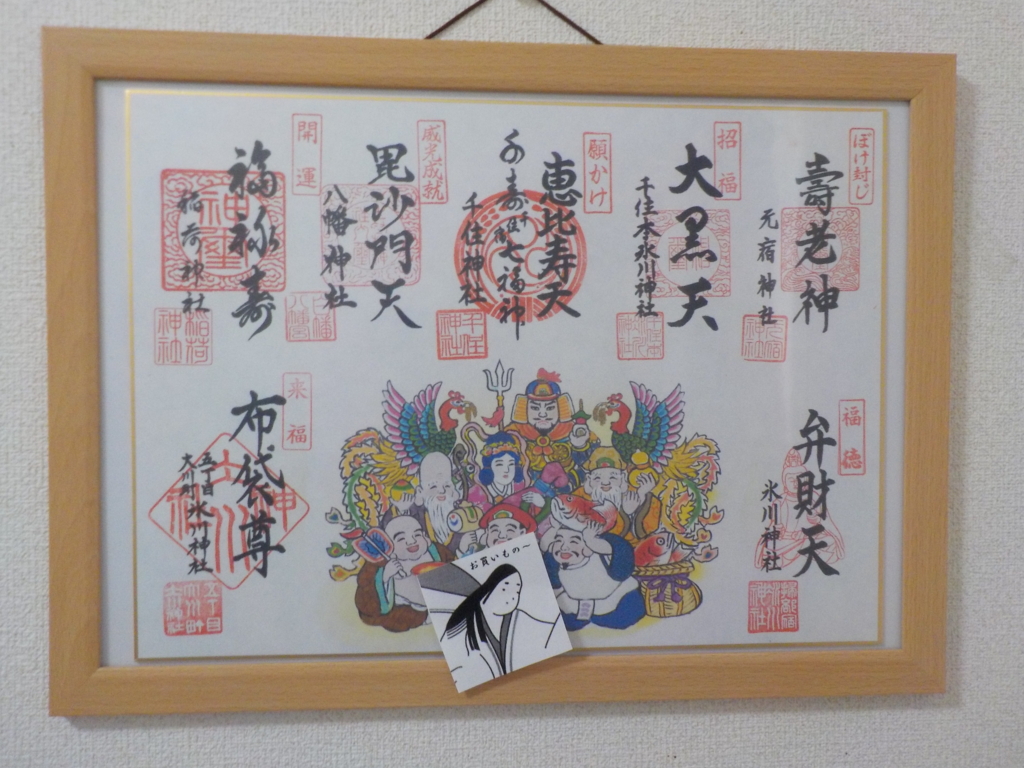 ぼけ封じ
壽老神
元宿神社
招福
大黒天
千住本氷川神社
願かけ
恵比寿天
千寿七福神
千住神社
千住神社
威光成就
毘沙門天
八幡神社
八幡
開運
福禄寿
稲荷神社
稲荷神社
福徳
弁財天
氷川神社
来福
布袋尊
五丁目
大川町氷川神社
五丁目大川町
お買いもの〜